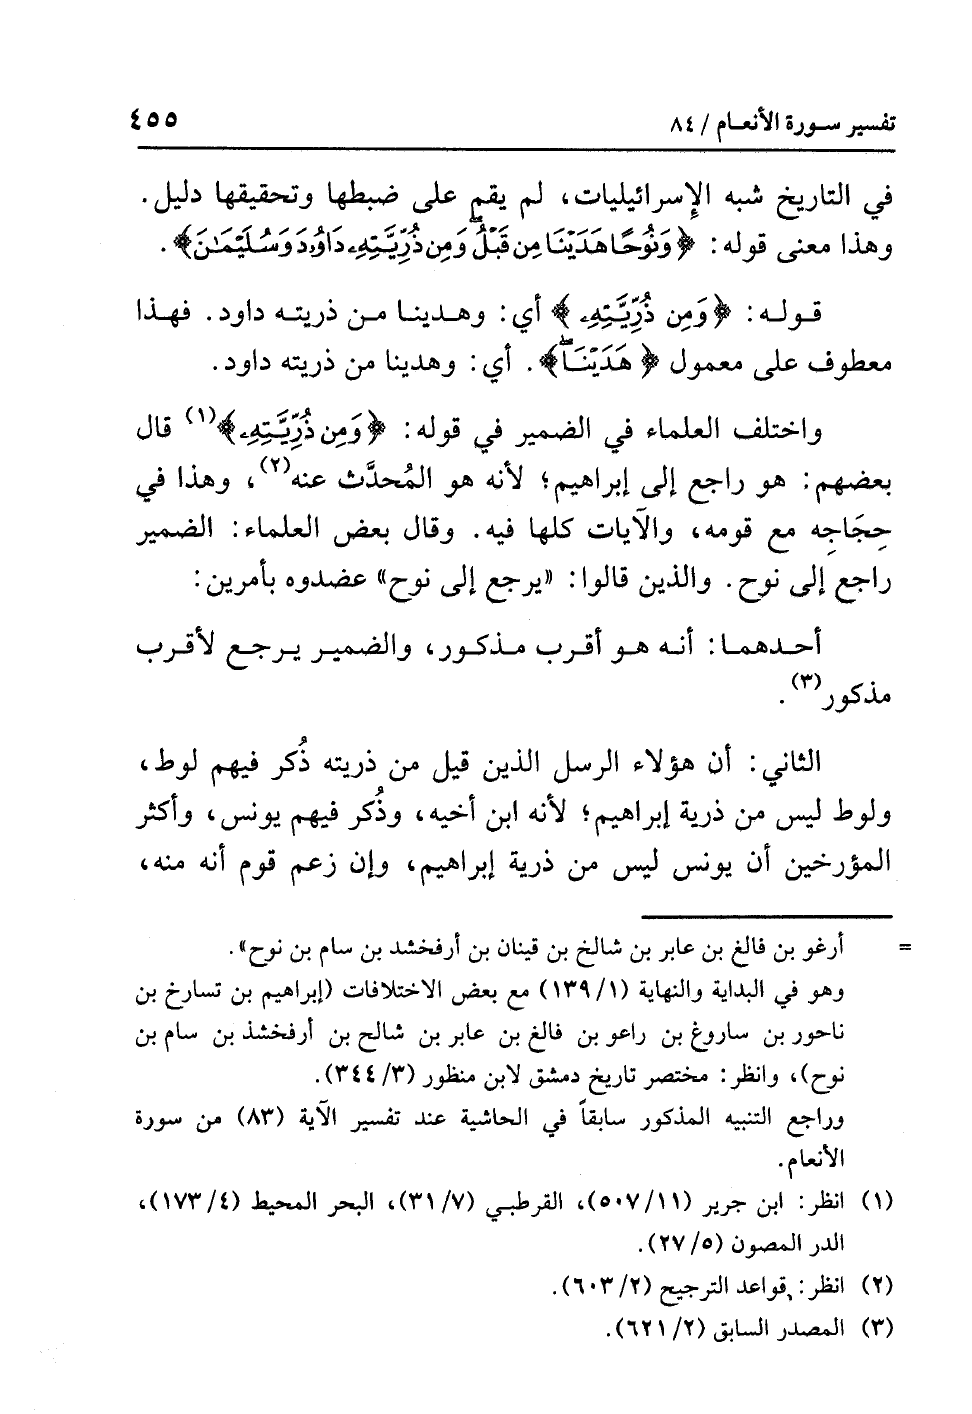 تفسير سورة الأنعام / ٨٤
٤٥٥
في التاريخ شبه الإسرائيليات، لم يقم على ضبطها وتحقيقها دليل.
وهذا معنى قوله: ﴿وَنُوحًا هَدَيْنَا مِن قَبْلُ وَمِن ذُرِّيَّتِهِۦ دَاوُۥدَ وَسُلَيْمَٰنَ﴾.
قوله: ﴿وَمِن ذُرِّيَّتِهِۦ﴾ أي: وهدينا من ذريته داود. فهذا
معطوف على معمول ﴿هَدَيْنَا﴾. أي: وهدينا من ذريته داود.
واختلف العلماء في الضمير في قوله: ﴿وَمِن ذُرِّيَّتِهِۦ﴾(١) قال
بعضهم: هو راجع إلى إبراهيم؛ لأنه هو المُحدَّث عنه(٢)، وهذا في
حِجَاجِه مع قومه، والآيات كلها فيه. وقال بعض العلماء: الضمير
راجع إلى نوح. والذين قالوا: «يرجع إلى نوح» عضدوه بأمرين:
أحدهما: أنه هو أقرب مذكور، والضمير يرجع لأقرب
مذكور(٣).
الثاني: أن هؤلاء الرسل الذين قيل من ذريته ذُكر فيهم لوط،
ولوط ليس من ذرية إبراهيم؛ لأنه ابن أخيه، وذُكر فيهم يونس، وأكثر
المؤرخين أن يونس ليس من ذرية إبراهيم، وإن زعم قوم أنه منه،
= أرغو بن فالغ بن عابر بن شالخ بن قينان بن أرفخشد بن سام بن نوح».
وهو في البداية والنهاية (١/ ١٣٩) مع بعض الاختلافات (إبراهيم بن تسارخ بن
ناحور بن ساروغ بن راعو بن فالغ بن عابر بن شالح بن أرفخشذ بن سام بن
نوح)، وانظر: مختصر تاريخ دمشق لابن منظور (٣/ ٣٤٤).
وراجع التنبيه المذكور سابقاً في الحاشية عند تفسير الآية (٨٣) من سورة
الأنعام.
(١) انظر: ابن جرير (١١/ ٥٠٧)، القرطبي (٧/ ٣١)، البحر المحيط (٤/ ١٧٣)،
الدر المصون (٥/ ٢٧).
(٢) انظر: قواعد الترجيح (٢/ ٦٠٣).
(٣) المصدر السابق (٢/ ٦٢١).